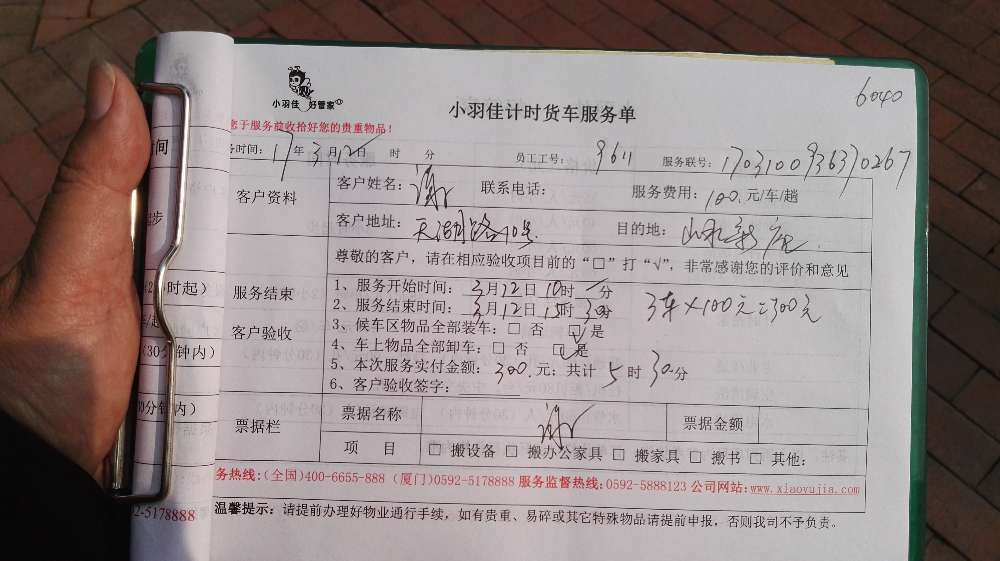 6040
小羽佳 好管家
小羽佳计时货车服务单
您于服务前收拾好您的贵重物品！
务时间：17年3月12日 时 分 员工工号：9611 服务联号：1703100936370267
客户资料
客户姓名：谢 联系电话： 服务费用：100.元/车/趟
客户地址：天湖路10号. 目的地：
尊敬的客户，请在相应验收项目前的“□”打“√”，非常感谢您的评价和意见
服务结束
客户验收
1、服务开始时间：3月12日10时 分
2、服务结束时间：3月12日15时30分
3车×100元=300元
3、候车区物品全部装车：□ 否 ☑是
4、车上物品全部卸车：□ 否 ☑是
5、本次服务实付金额：300.元；共计 5 时 30分
6、客户验收签字：
谢
票据栏
票据名称 票据金额
项 目 □ 搬设备 □ 搬办公家具 □ 搬家具 □ 搬书 □ 其他：
务热线：(全国)400-6655-888 (厦门)0592-5178888 服务监督热线：0592-5888123 公司网站：www.xiaoyujia.com
温馨提示：请提前办理好物业通行手续，如有贵重、易碎或其它特殊物品请提前申报，否则我司不予负责。
时起）
（30分钟内）
0分钟内）
2-5178888